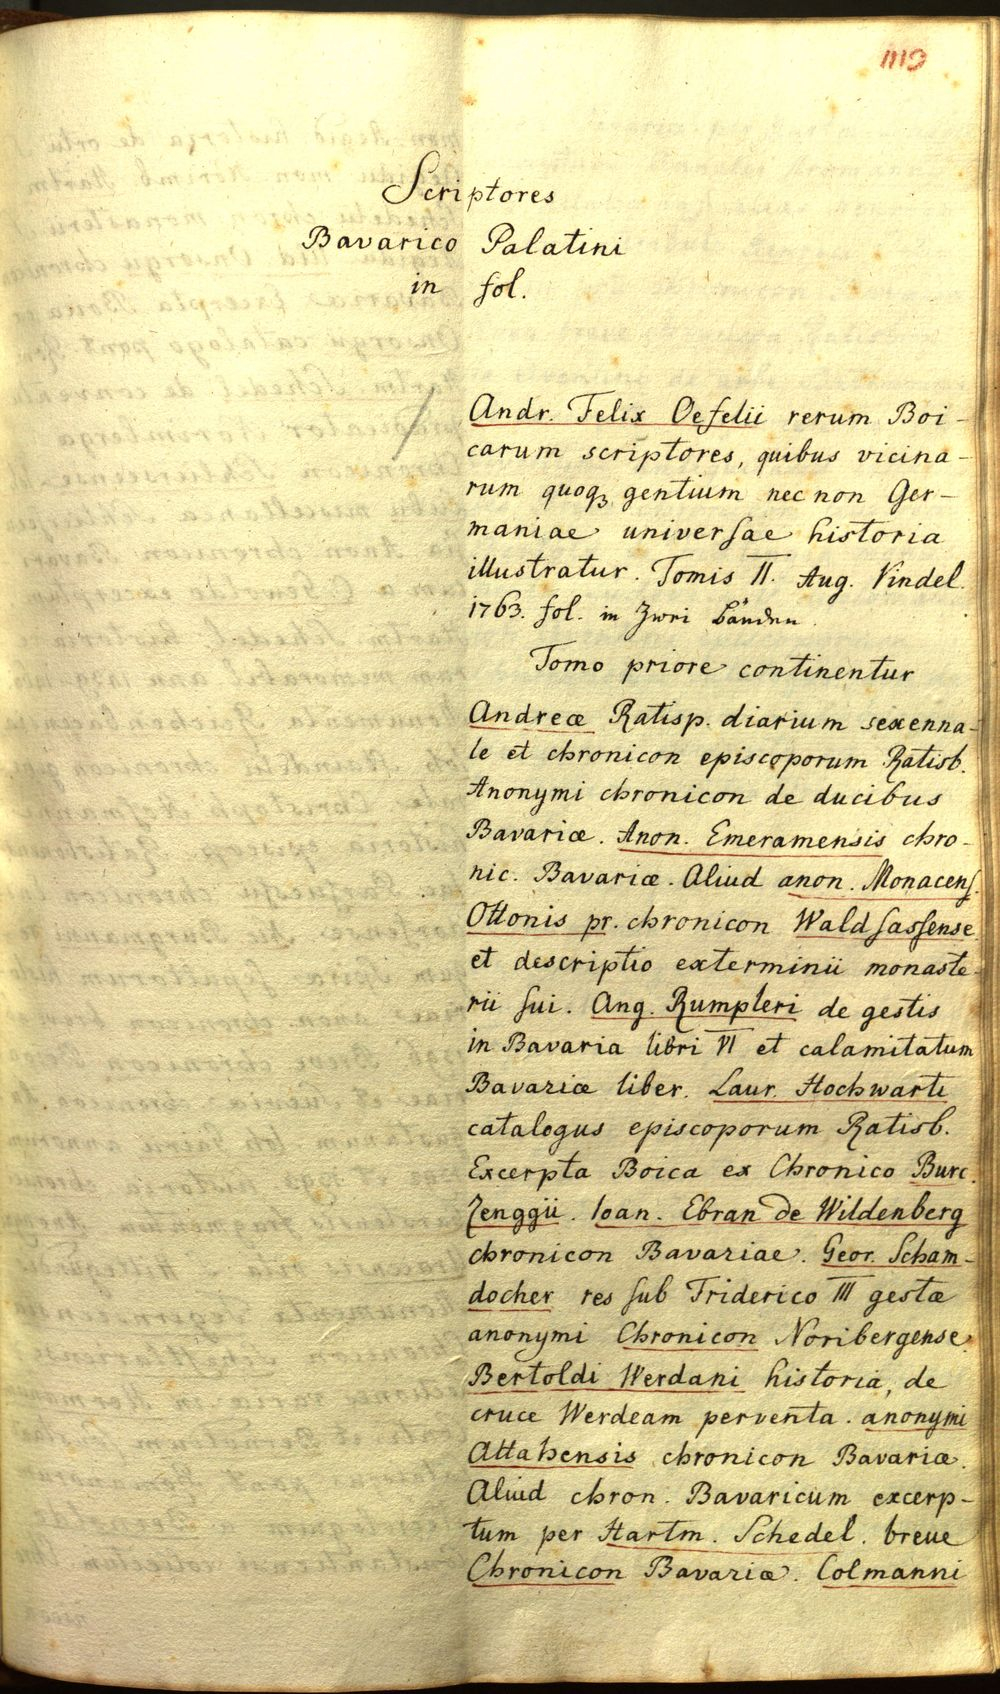 1119
Scriptores
Bavarico Palatini
in fol.
Andr. Felix Oefelii rerum Boi-
carum scriptores, quibus vicina-
rum quoqꝫ gentium nec non Ger-
maniae universae historia
illustratur. Tomis II. Aug. Vindel.
1763. fol. in Zwei Bänden.
Tomo priore continentur
Andreæ Ratisp. diarium sexenna-
le et chronicon episcoporum Ratisb.
Anonymi chronicon de ducibus
Bavariæ. Anon. Emeramensis chro-
nic. Bavariæ. Aliud anon. Monacens.
Ottonis pr. chronicon Waldsassense
et descriptio exterminii monaste-
rii sui. Ang. Rumpleri de gestis
in Bavaria libri VI et calamitatum
Bavariæ liber. Laur. Hochwarti
catalogus episcoporum Ratisb.
Excerpta Boica ex Chronico Burc.
Zenggii. Ioan. Ebran de Wildenberg
chronicon Bavariae. Geor. Scham-
docher res sub Friderico III gestæ
anonymi Chronicon Noribergense.
Bertoldi Werdani historia, de
cruce Werdeam perventa. anonymi
Altahensis chronicon Bavariæ.
Aliud chron. Bavaricum excerp-
tum per Hartm. Schedel. breue
Chronicon Bavariæ. Colmanni